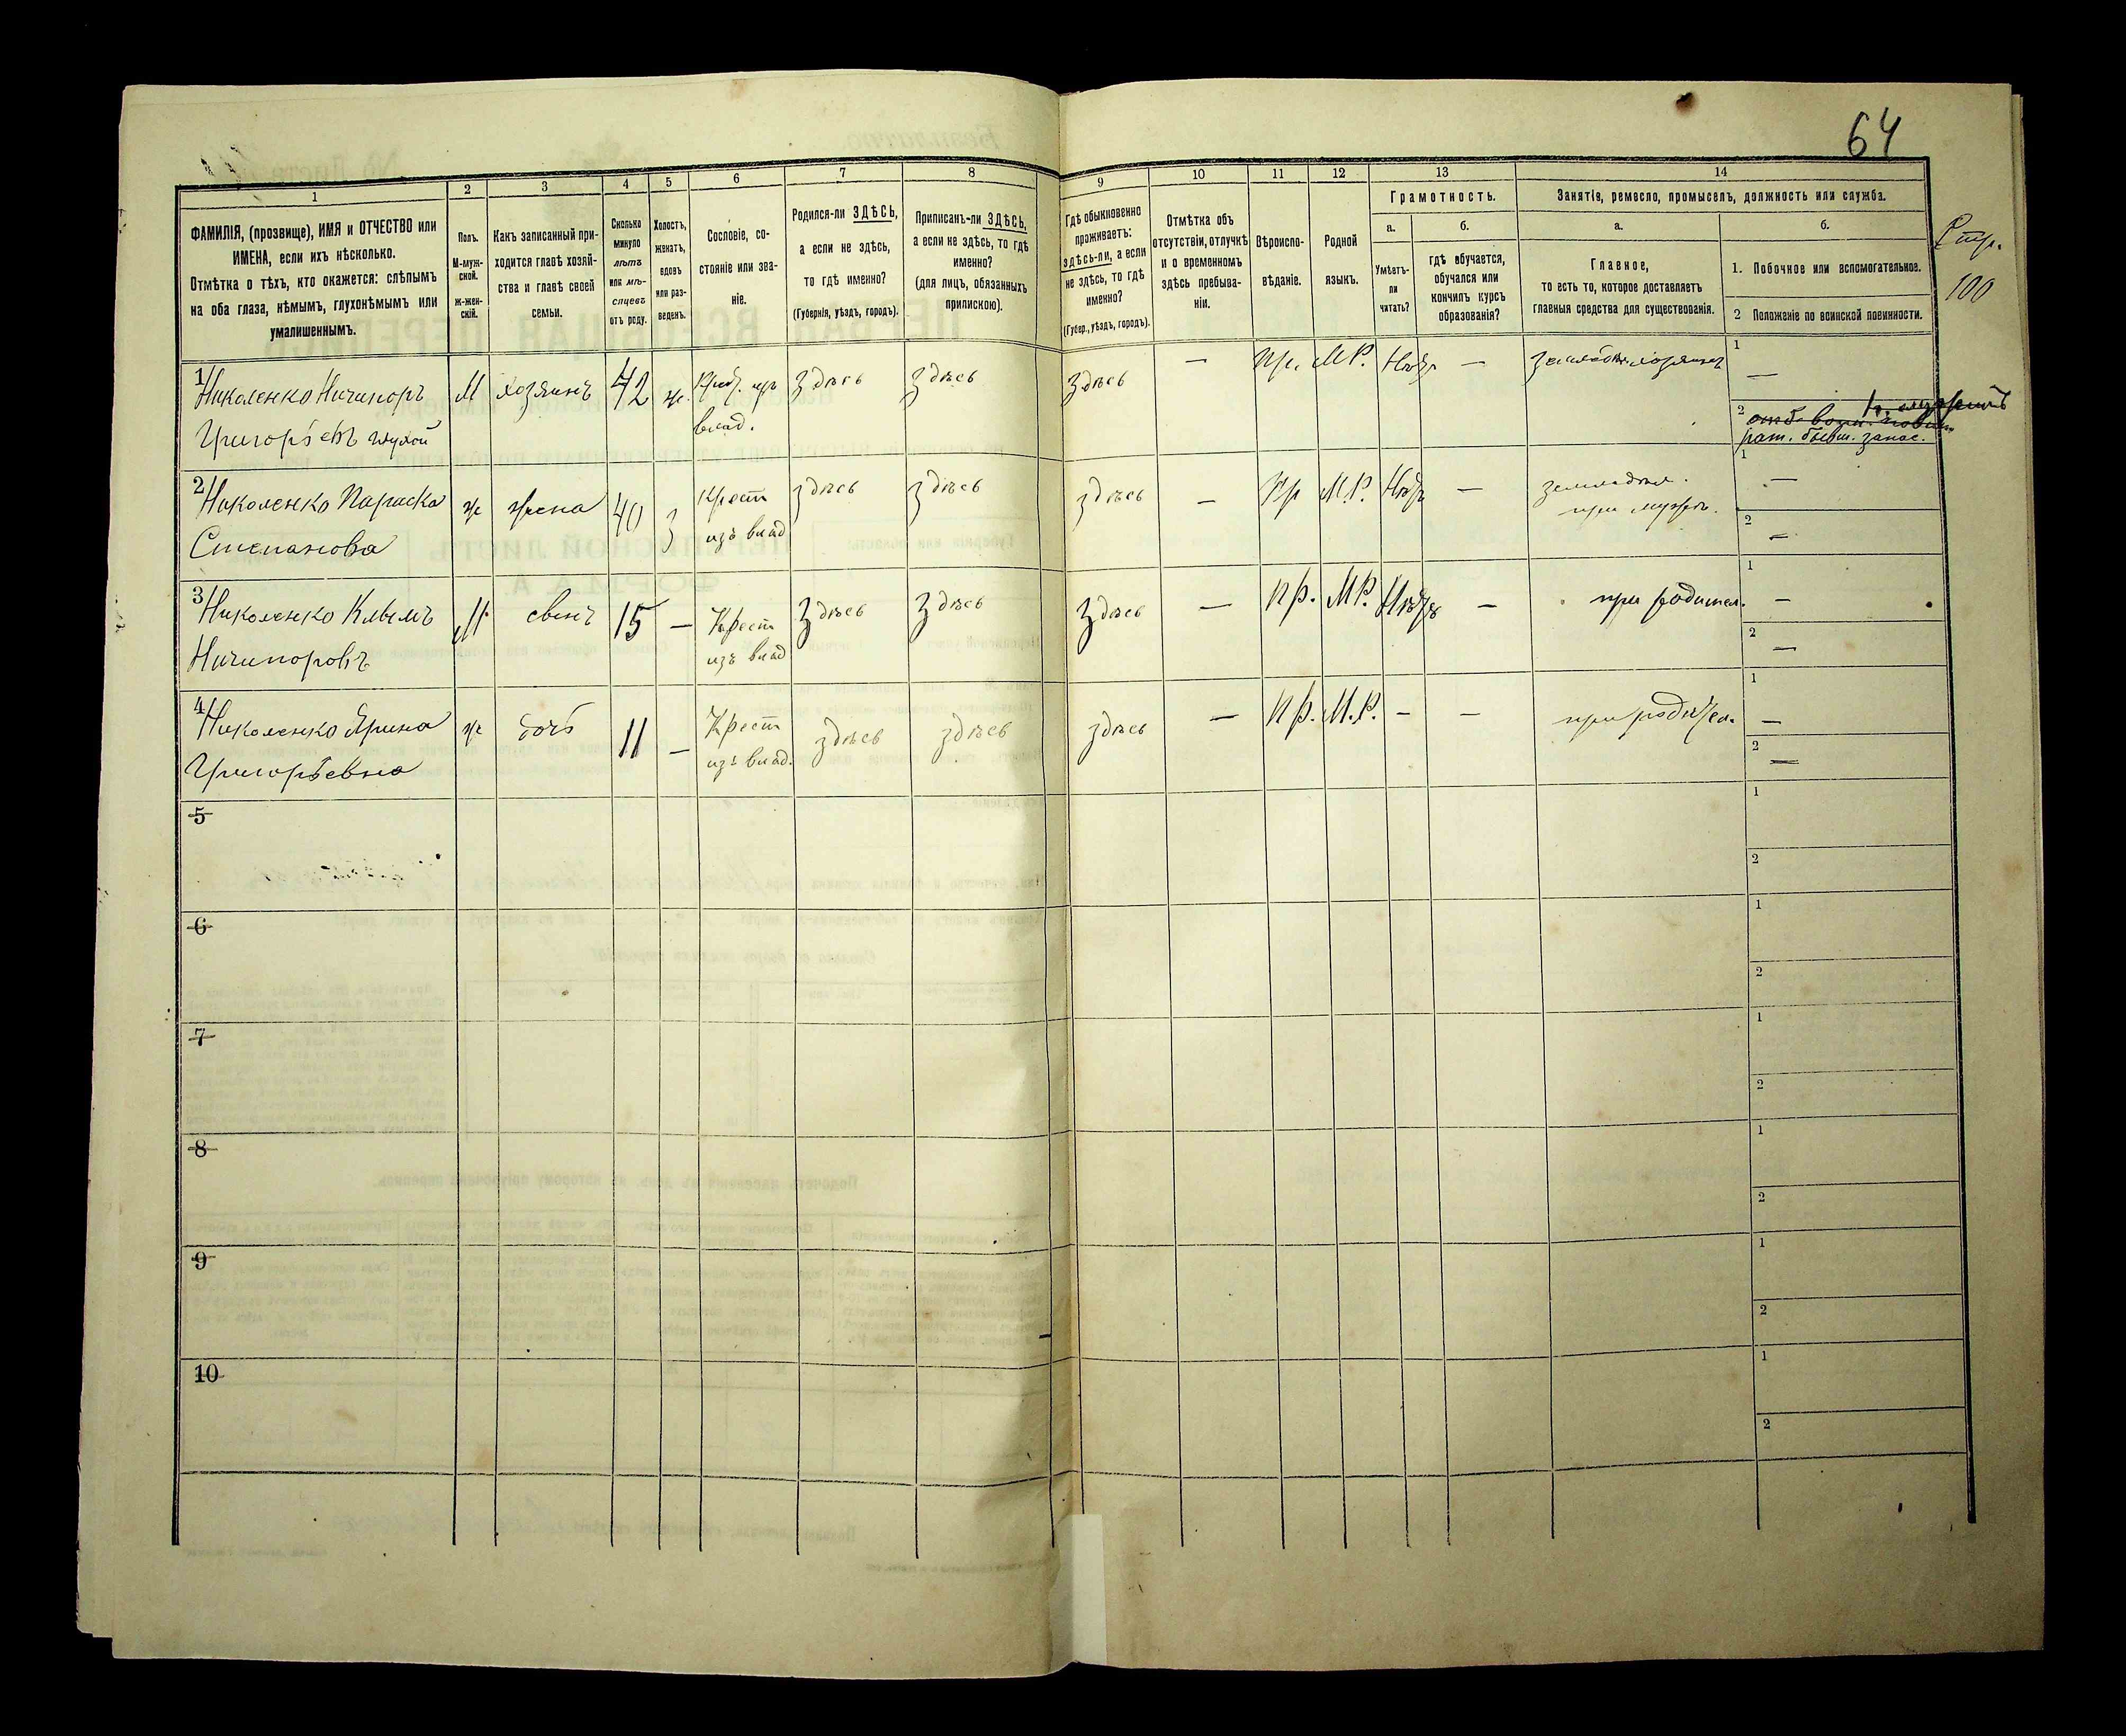 64
Стр.
100
1
2
3
4
5
6
7
8
9
10
11
12
13
14
ФАМИЛІЯ, (прозвище), ИМЯ и ОТЧЕСТВО или
ИМЕНА, если ихъ нѣсколько.
Отмѣтка о тѣхъ, кто окажется: слѣпымъ
на оба глаза, нѣмымъ, глухонѣмымъ или
умалишеннымъ.
Полъ.
М-муж-
ской.
Ж-жен-
скій.
Какъ записанный при-
ходится главѣ хозяй-
ства и главѣ своей
семьи.
Сколько
минуло
лѣтъ
или мѣ-
сяцевъ
отъ роду.
Холостъ,
женатъ,
вдовъ
или раз-
веденъ.
Сословіе, со-
стояніе или зва-
ніе.
Родился-ли ЗДѢСЬ,
а если не здѣсь,
то гдѣ именно?
(Губернія, уѣздъ, городъ).
Приписанъ-ли ЗДѢСЬ,
а если не здѣсь, то гдѣ
именно?
(для лицъ, обязанныхъ
припискою).
Гдѣ обыкновенно
проживаетъ:
здѣсь-ли, а если
не здѣсь, то гдѣ
именно?
(Губер., уѣздъ, городъ).
Отмѣтка объ
отсутствіи, отлучкѣ
и о временномъ
здѣсь пребыва-
ніи.
Вѣроиспо-
вѣданіе.
Родной
языкъ.
Грамотность.
а.
Умѣетъ-
ли
читать?
б.
гдѣ обучается,
обучался или
кончилъ курсъ
образованія?
Занятіе, ремесло, промыселъ, должность или служба.
а.
Главное,
то есть то, которое доставляетъ
главныя средства для существованія.
б.
1. Побочное или вспомогательное.
2 Положеніе по воинской повинности.
1
Николенко Ничипоръ
Григорьевъ глухой
М
хозяинъ
42
ж.
влад.
здѣсь
здѣсь
здѣсь
—
Пр.
М.Р.
Нѣтъ
—
1
—
2
рат. бывш. запас.
2
Николенко Параска
Степанова
ж
жена
40
З
Крест
изъ влад
здѣсь
здѣсь
здѣсь
—
Пр
М.Р.
Нѣтъ
—
земледѣл.
при мужѣ.
1
—
2
—
3
Николенко Клымъ
Ничипоровъ
М
сынъ
15
—
Крест
изъ влад
здѣсь
здѣсь
здѣсь
—
Пр.
М.Р.
Нѣтъ
—
при родител.
1
—
2
—
4
Николенко Ярина
Григорьевна
ж
дочь
11
—
Крест
изъ влад.
здѣсь
здѣсь
здѣсь
—
Пр.
М.Р.
—
—
при родител.
1
—
2
—
5
1
2
6
1
2
7
1
2
8
1
2
9
1
2
10
1
2